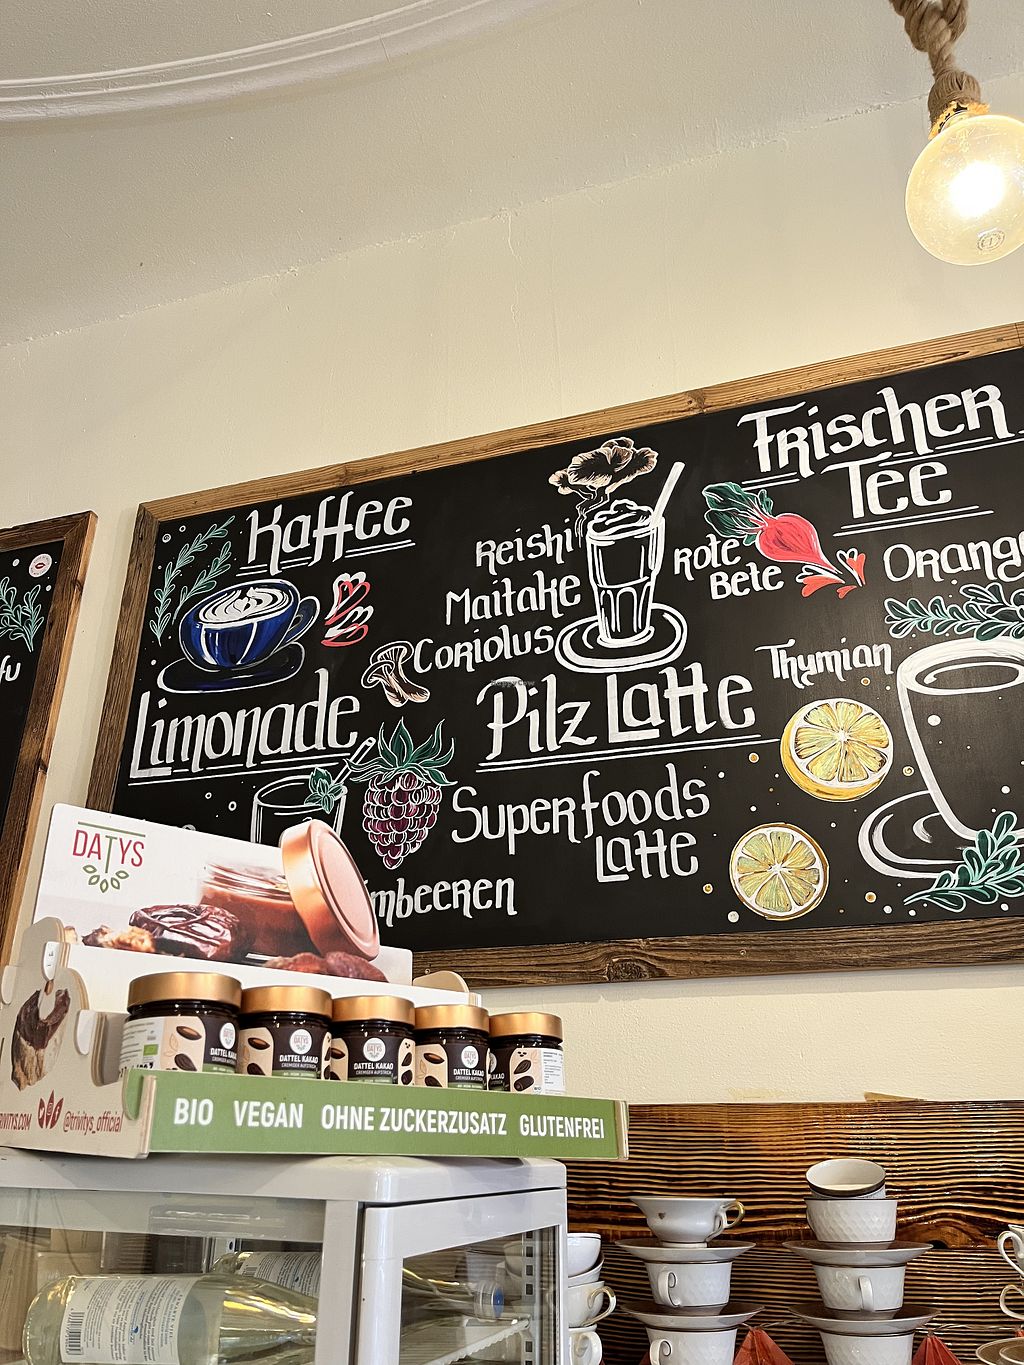 Kaffee
Frischer
Tee
Reishi
Maitake
Coriolus
Rote
Bete
Thymian
Limonade
Pilz Latte
Superfoods
Latte
DATYS
BIO VEGAN OHNE ZUCKERZUSATZ GLUTENFREI
@trivitys_official
DATTEL KAKAO
CREMIGER AUFSTRICH
DATTEL KAKAO
CREMIGER AUFSTRICH
DATTEL KAKAO
CREMIGER AUFSTRICH